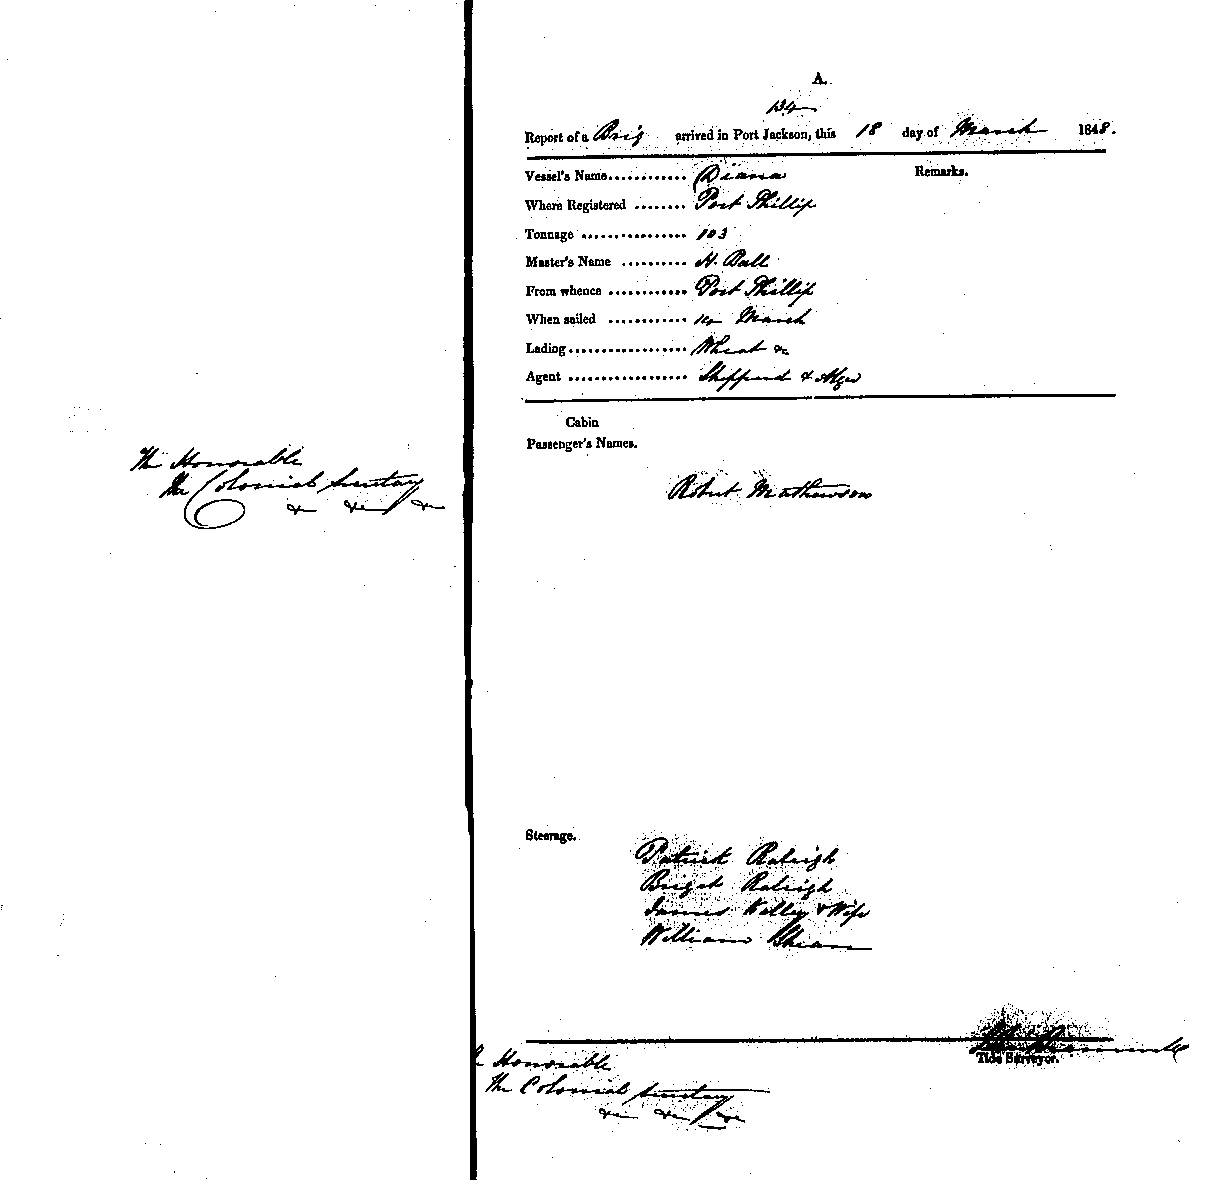 The Honorable
The Colonial Secretary
&c &c &c
A.
134
Report of a Brig arrived in Port Jackson, this 18 day of March 1848.
Vessel's Name............ Diana Remarks.
Where Registered ........ Port Phillip
Tonnage ................ 103
Master's Name .......... H. Ball
From whence ............ Port Phillip
When sailed ............ March
Lading.................. Wheat &c
Agent .................. Sheppard & Alger
Cabin
Passenger's Names.
Robert Mathewson
Steerage.
Patrick Raleigh
Briget Raleigh
James Kelley & Wife
William
Tide Surveyor.
Honorable
The Colonial Secretary
&c &c &c